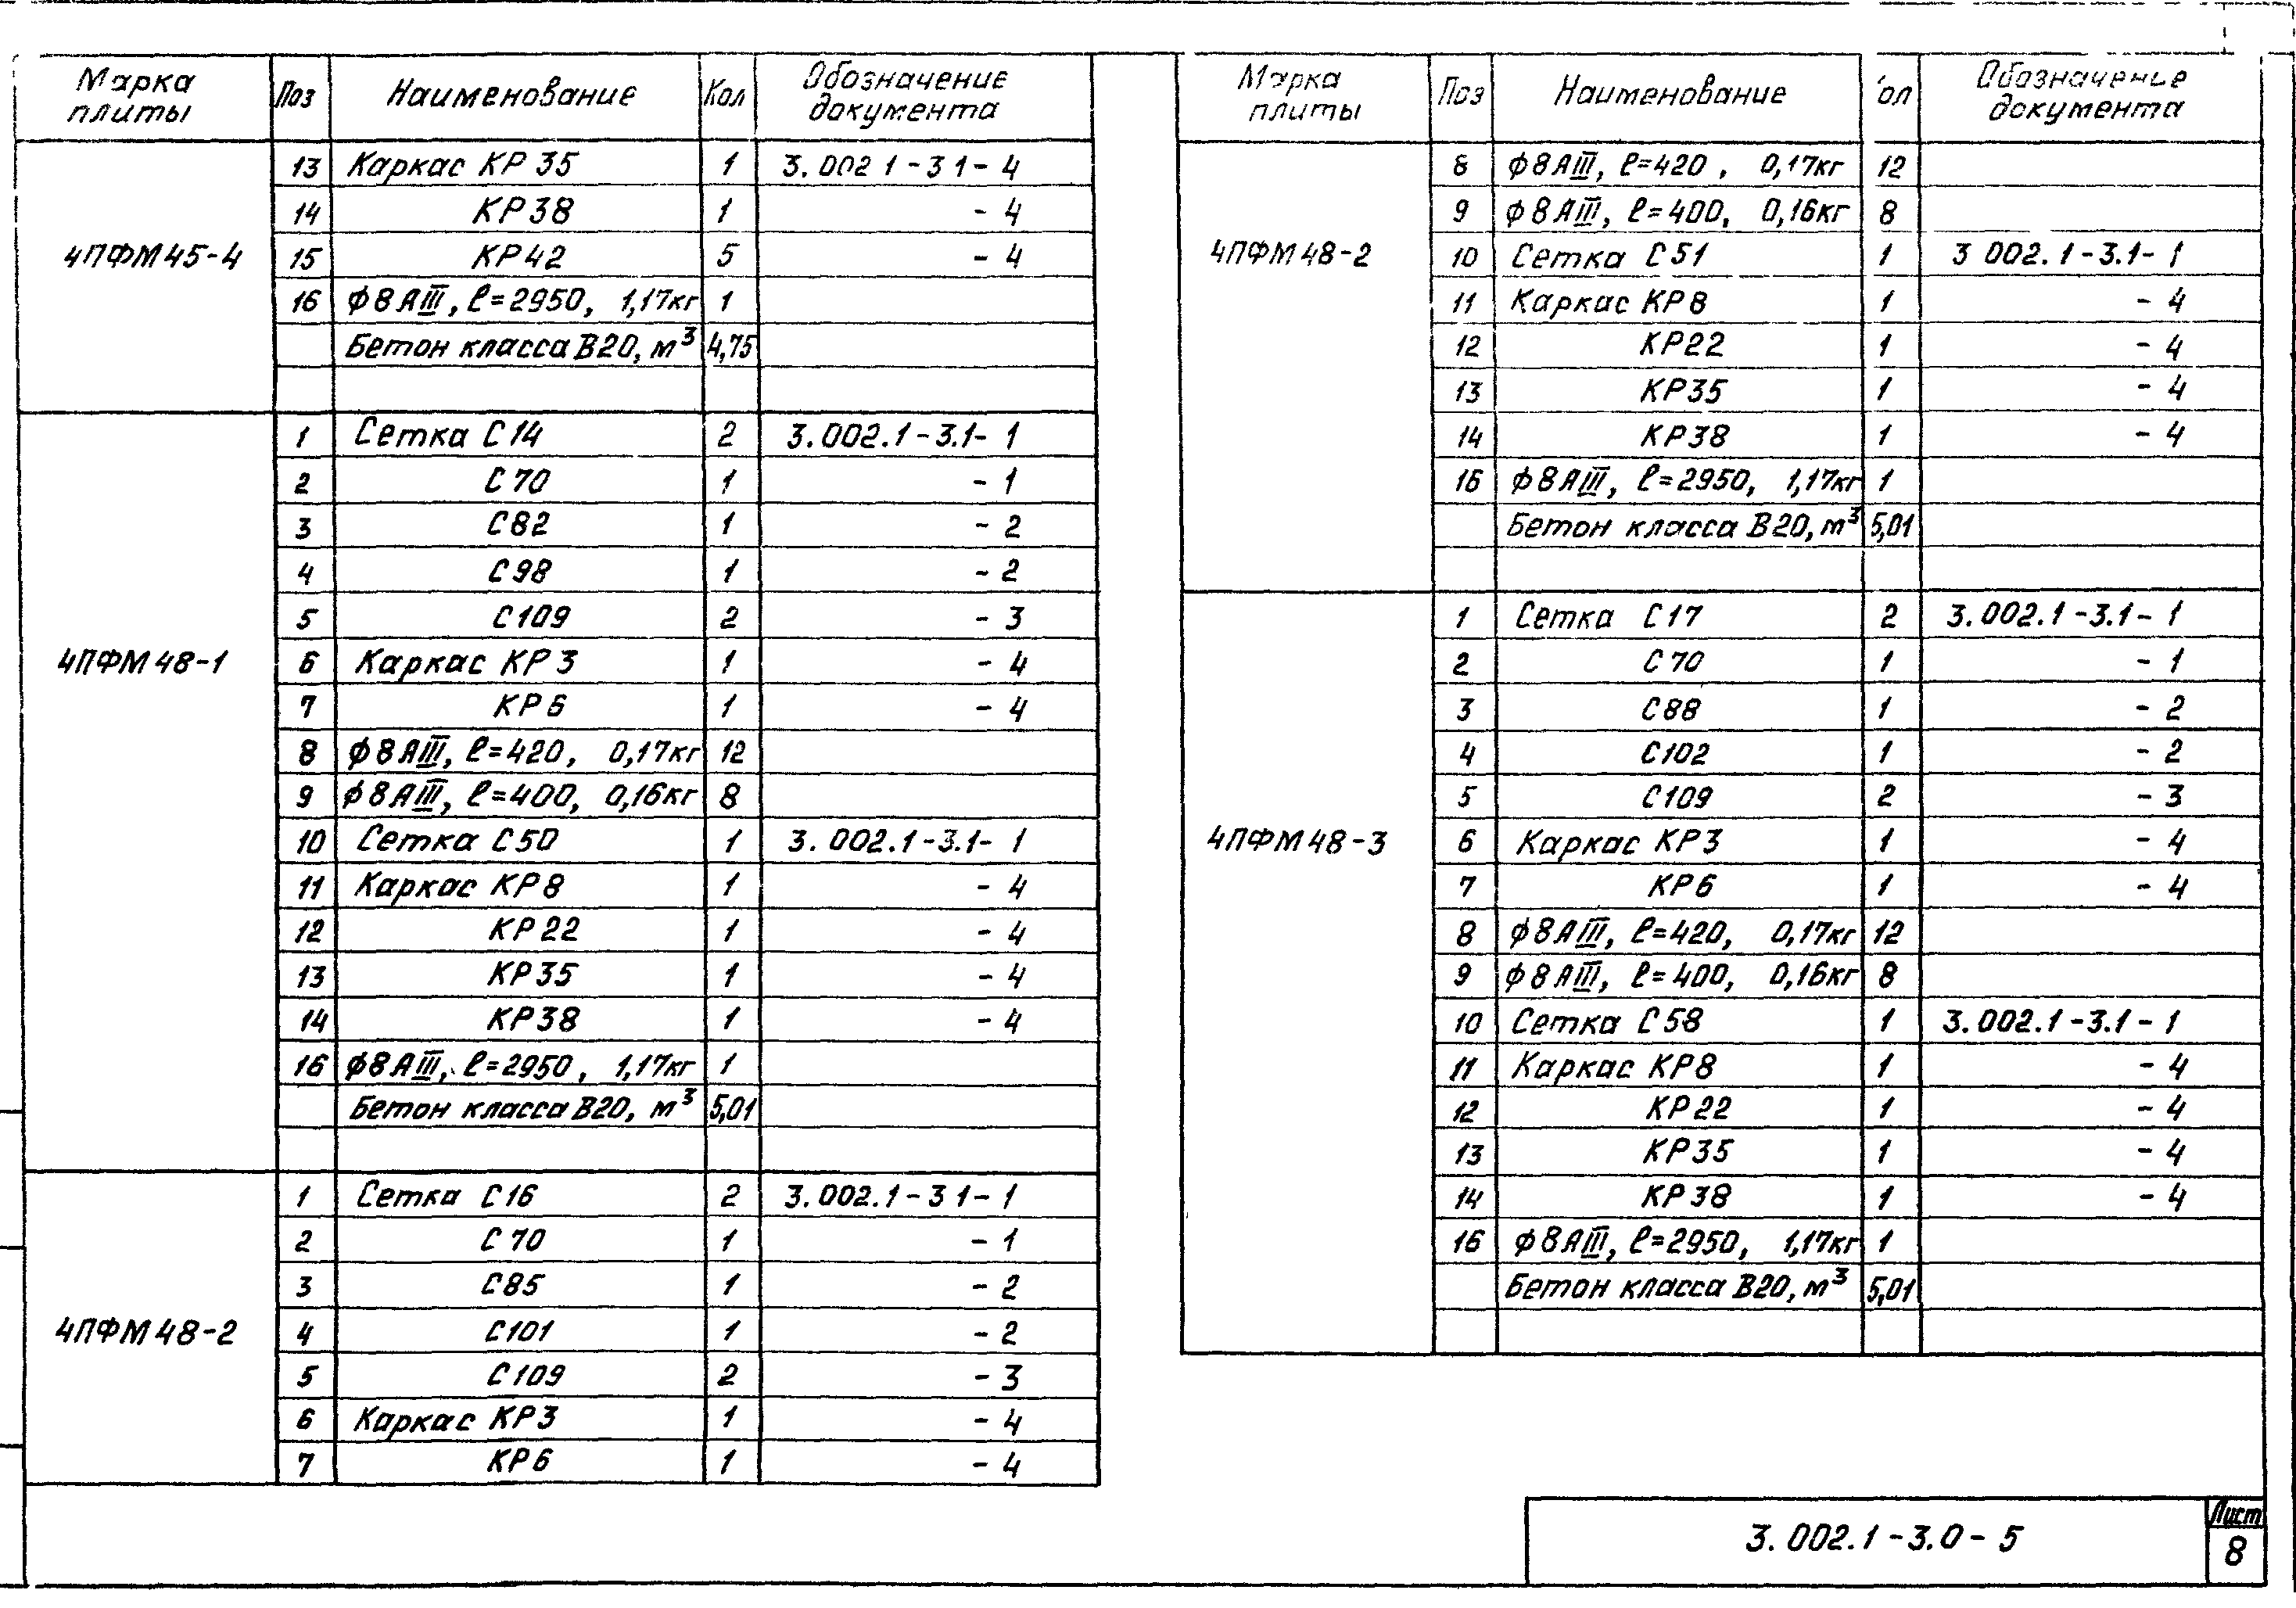 Марка плиты Поз Наименование Кол Обозначение документа
4ПФМ45-4
13 Каркас КР35 1 3.002 1-3 1- 4
14 КР38 1 - 4
15 КР42 5 - 4
16 ф8АIII, ℓ=2950, 1,17кг 1
Бетон класса В20, м³ 4,75
4ПФМ48-1
1 Сетка С14 2 3.002.1-3.1- 1
2 С70 1 - 1
3 С82 1 - 2
4 С98 1 - 2
5 С109 2 - 3
6 Каркас КР3 1 - 4
7 КР6 1 - 4
8 ф8АIII, ℓ=420, 0,17кг 12
9 ф8АIII, ℓ=400, 0,16кг 8
10 Сетка С50 1 3.002.1-3.1- 1
11 Каркас КР8 1 - 4
12 КР22 1 - 4
13 КР35 1 - 4
14 КР38 1 - 4
16 ф8АIII, ℓ=2950, 1,17кг 1
Бетон класса В20, м³ 5,01
4ПФМ48-2
1 Сетка С16 2 3.002.1-3 1- 1
2 С70 1 - 1
3 С85 1 - 2
4 С101 1 - 2
5 С109 2 - 3
6 Каркас КР3 1 - 4
7 КР6 1 - 4
Марка плиты Поз Наименование ол Обозначение документа
4ПФМ48-2
8 ф8АIII, ℓ=420, 0,17кг 12
9 ф8АIII, ℓ=400, 0,16кг 8
10 Сетка С51 1 3 002.1-3.1- 1
11 Каркас КР8 1 - 4
12 КР22 1 - 4
13 КР35 1 - 4
14 КР38 1 - 4
16 ф8АIII, ℓ=2950, 1,17кг 1
Бетон класса В20, м³ 5,01
4ПФМ48-3
1 Сетка С17 2 3.002.1-3.1- 1
2 С70 1 - 1
3 С88 1 - 2
4 С102 1 - 2
5 С109 2 - 3
6 Каркас КР3 1 - 4
7 КР6 1 - 4
8 ф8АIII, ℓ=420, 0,17кг 12
9 ф8АIII, ℓ=400, 0,16кг 8
10 Сетка С58 1 3.002.1-3.1- 1
11 Каркас КР8 1 - 4
12 КР22 1 - 4
13 КР35 1 - 4
14 КР38 1 - 4
16 ф8АIII, ℓ=2950, 1,17кг 1
Бетон класса В20, м³ 5,01
3.002.1-3.0-5
Лист
8